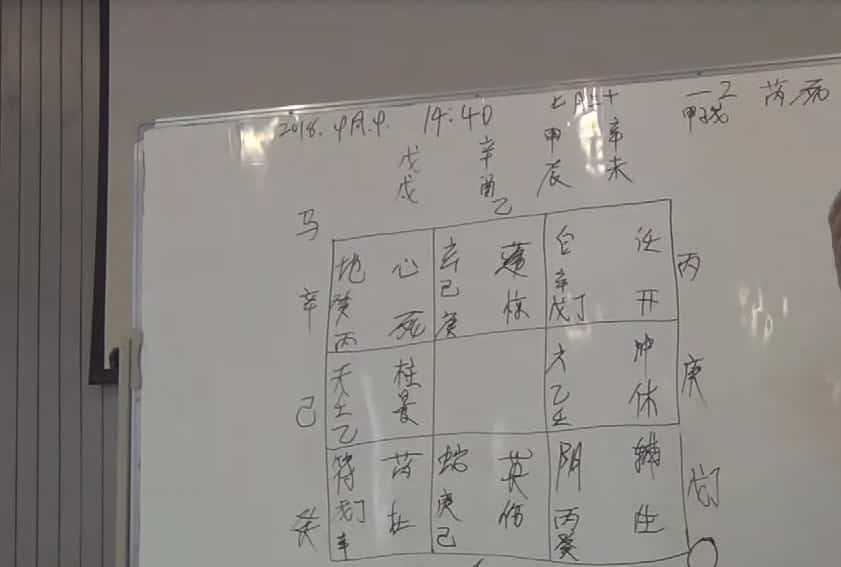 2018. 9月.9. 14:40 七月三十 一 2 芮死
戊戌 辛酉 甲辰 辛未 甲子戊
马 乙
地 心 玄 蓬 白 任 丙
辛 癸 己 辛 
丙 死 庚 惊 戊丁 开
天 柱 六 冲 庚
己 壬 景 乙 休
乙 壬
符 芮 蛇 英 阴 辅 戊丁
戊丁 庚 丙
癸 辛 杜 己 伤 癸 生